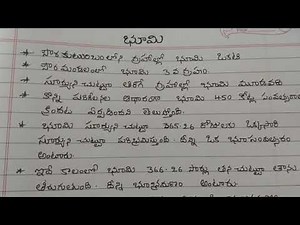 భూమి
* సౌరకుటుంబంలోని గ్రహాల్లో భూమి ఒకటి
* సౌర మండలంలో భూమి 3 వ గ్రహం.
* సూర్యుని చుట్టూ తిరిగే గ్రహాల్లో భూమి మూడవది
* కొన్ని పరిశోధనల ఆధారంగా భూమి 450 కోట్ల సంవత్సరాల
క్రిందట ఏర్పడిందని తెలుస్తోంది.
* భూమి సూర్యుని చుట్టూ 365.26 రోజులకు ఒక్కసారి
సూర్యుని చుట్టూ పరిభ్రమిస్తుంది. దీన్ని ఒక భూసంవత్సరం
అంటారు.
* ఇదే కాలంలో భూమి 366.26 సార్లు తన చుట్టూ తాను
తిరుగుతుంది. దీన్ని భూభ్రమణం అంటారు.